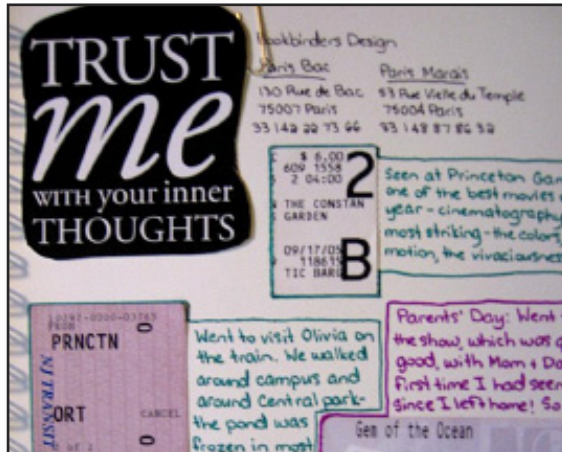 TRUST
me
WITH your inner
THOUGHTS
Bookbinders Design
Paris Bac
130 Rue de Bac
75007 Paris
33 142 22 73 66
Paris Marais
53 Rue Vielle du Temple
75004 Paris
33 1 48 87 86 32
$ 6.00
609 1558
$ 2 04:00
2
THE CONSTAN
GARDEN
09/17/05
TIC BARG
B
Seen at Princeton Gar
one of the best movies
year - cinematography
most striking - the colors,
motion, the vivaciousness
PRNCTN
ORT
CANCEL
NJ TRANSIT
Went to visit Olivia on
the train. We walked
around campus and
around Central park-
the pond was
frozen in most
Parents' Day: Went
the show, which was
good, with Mom + Da
First time I had seen
since I left home! So
Gem of the Ocean